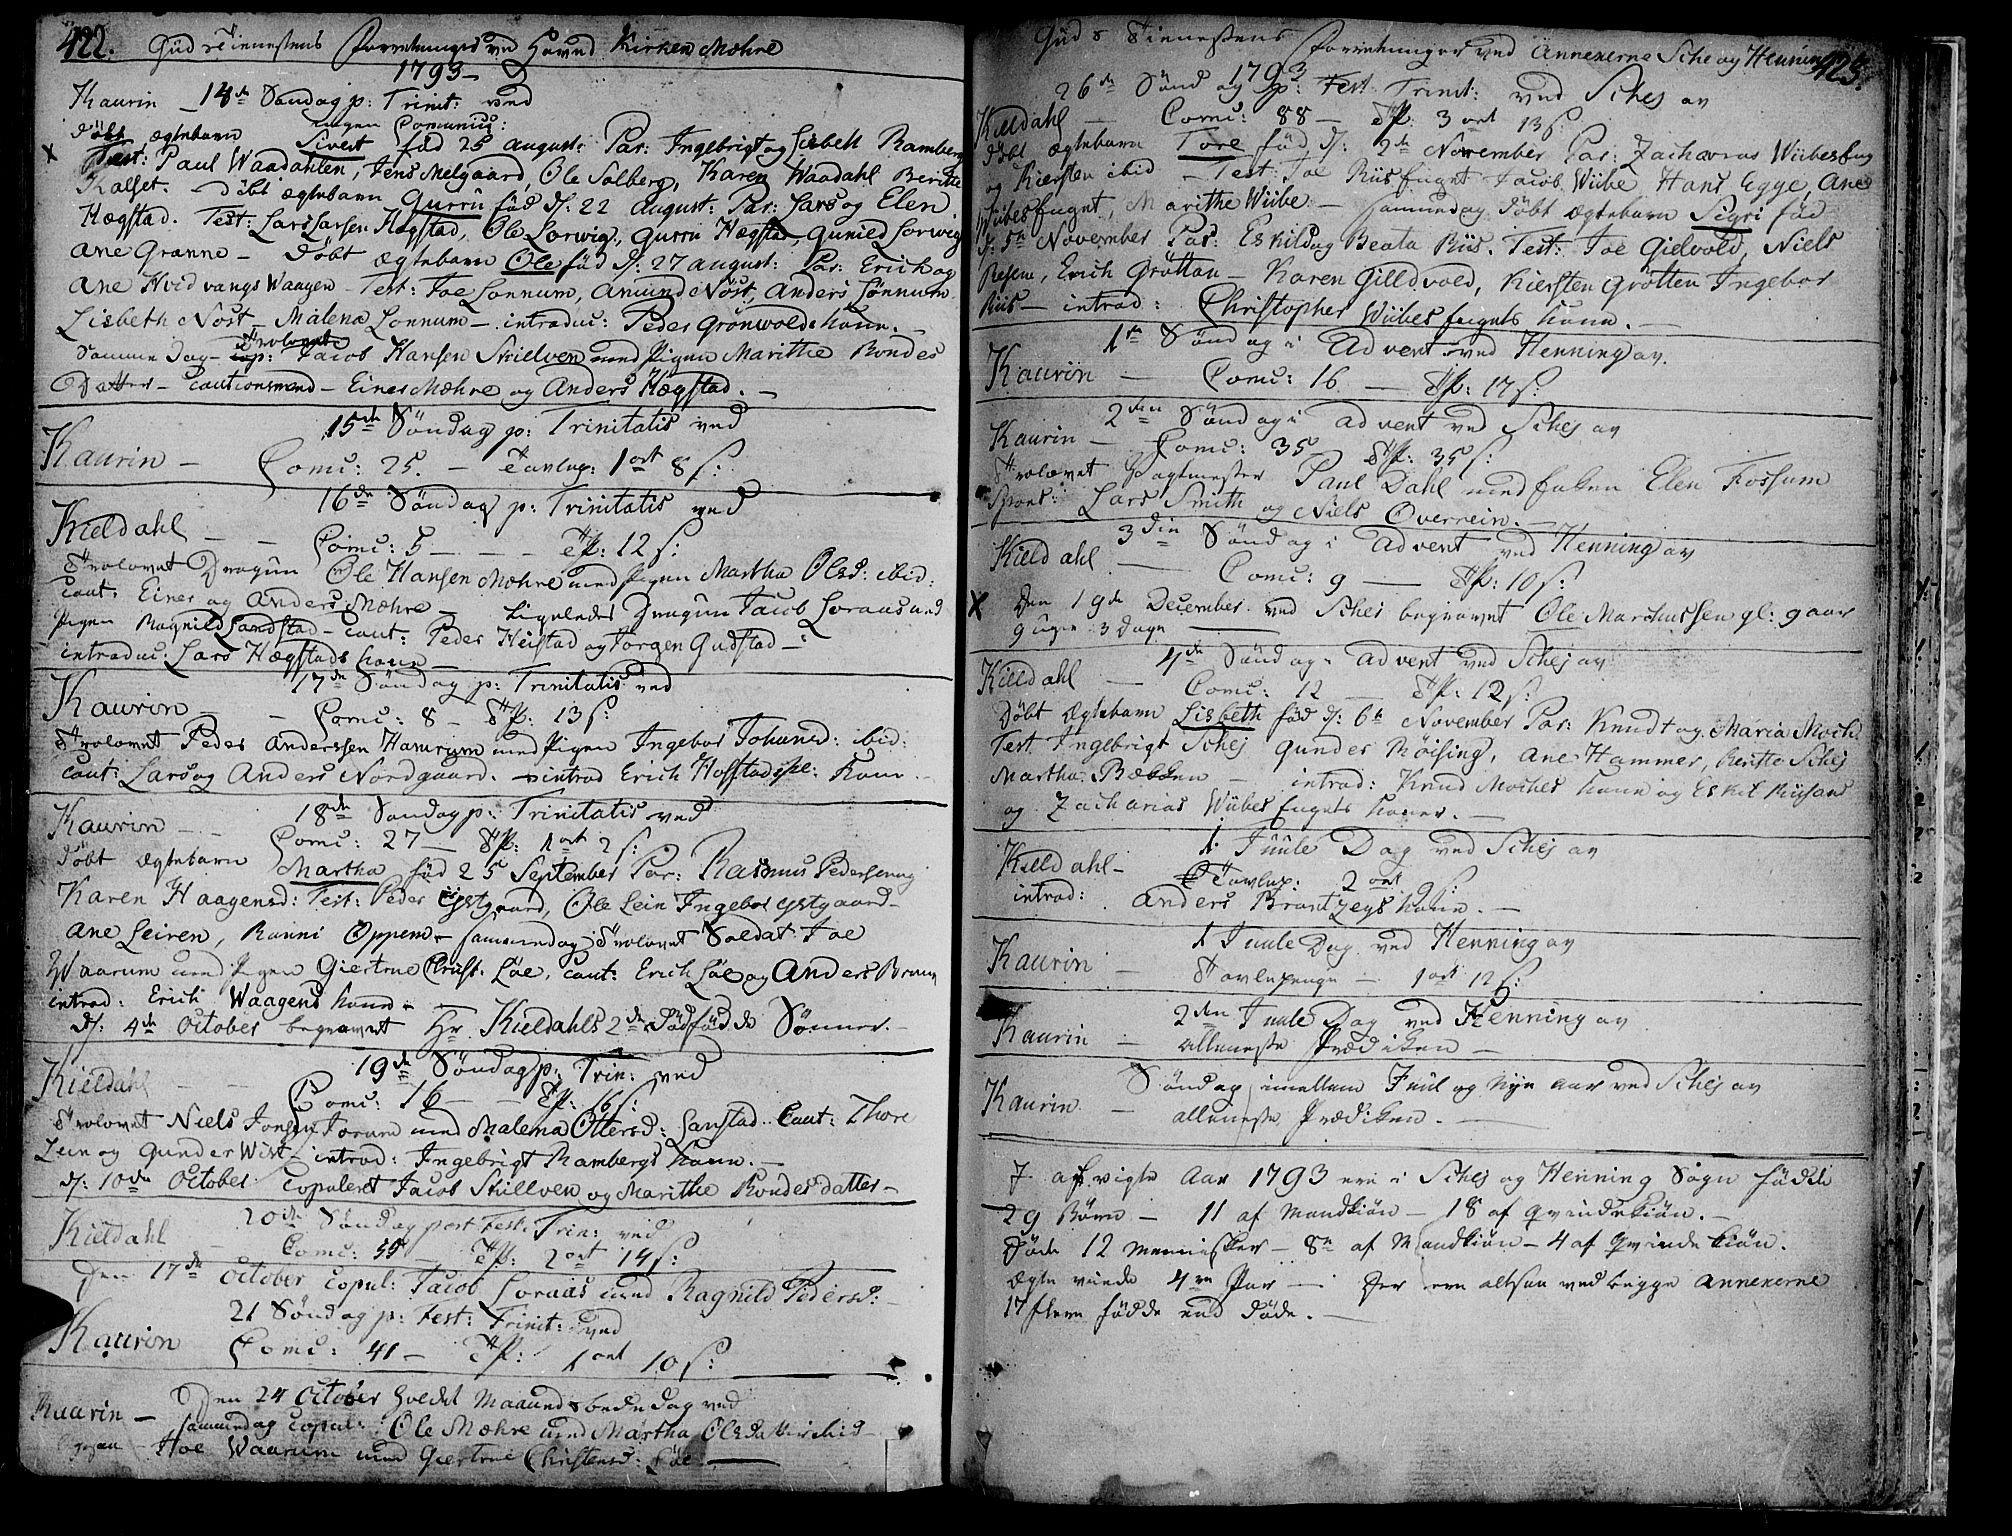 422. Gudstienestens Forretninger ved Hoved Kirken Mæhre
1793
Kaurin - 14de Søndag p: Trinit: ved
ingen Comunic:
Døbt ægtebarn Sivert fød 25 august: Par: Ingebrigt og Lisbeth Ramberg
Test: Paul Waadahlen, Jens Melgaard, Ole Solberg, Karen Waadahl Beritte
Kalset. Døbt ægtebarn Gurru fød d: 22 August: Par: Lars og Elen
Hægstad. Test: Lars Larsen Hægstad, Ole Lorwig, Gurru Hægstad, Gunild Lorwig
Ane Grænne - Døbt ægtebarn Ole fød d: 27 august: Par: Erich og
Ane Hvidvangs Waagen - Test: Joe Lonnum, Amund Nøst, Anders Lønnum
Lisbeth Nøst - Malena Lonnum - introduc: Peder Grønwolds kone. -
Samme Dag - Trolovet Jacob Hansen Skielven med Pigen Marithe Bondes
Datter - cautionsmænd - Einer Mæhre og Anders Hægstad. -
15de Søndag p: Trinitatis ved
Kaurin - Comu: 25. - Tavlup: 1 ort 8 s:
16de Søndag p: Trinitatis ved
Kieldahl - - Comu: 5 - - - TP: 12 s:
Trolovet Dragun Ole Hansen Mæhre med Pigen Martha Olsd: ibid:
Caut: Einer og Anders Mæhre - Ligeledes Dragun Jacob Loraas med
Pigen Ragnild Landstad - Caut: Peder Heistad og Jorgen Gudstad -
introduc: Lars Hægstads kone -
17de Søndag p: Trinitatis ved
Kaurin - - Comu: 8 - TP: 13 s:
Trolovet Peder Anderssen Hamrum med Pigen Ingebor Johansd: ibid:
Caut: Lars og Anders Nordgaard. - introd Erich Hofstads kone -
18de Søndag p: Trinitatis ved
Kaurin - - Comu: 27 - TP: 1 ort 2 s:
Døbt ægtebarn Martha fød 25 September Par: Rasmus Pedersen og
Karen Haagensd: Test: Peder Eystgaard, Ole Lein Ingebor eystgaard -
Ane Leiren, Ranni Oppem - samme dag Trolovet Soldat Joe
Waarum med Pigen Giertrue Christ: Løe, Caut: Erich Løe og Anders Braun
introd: Erich Waagens kone -
d: 4de October begravet Hr. Kieldahls 2de Dødfødde Sønner. -
19de Søndag p: Trin: ved
Kieldahl - - Comu: 16 - - TP: 16 s:
Trolovet Niels Jonsen Jorum med Malena Ottersd: Lanstad. Caut: Thore
Lein og Gunder Wist / introd: Ingebrigt Rambergs kone. -
d: 10de October Copuleret Jacob Skillven og Marithe Bondesdatter -
20de Søndag post Fest: Trin: ved
Kieldahl - Comu: 59 - TP: 2 ort 14 s:
Den 17de October Copul: Jacob Loraas med Ragnild Pedersd: -
21 Søndag p: Fest: Trinit: ved
Kaurin Comu: 41 - TP: 1 ort 10 s:
Den 24 October holdet Maaneds bededag ved
Kaurin - samme dag Copul: Ole Mæhre med Martha Olsdatter ibid -
Joe Waarum med Giertrue Christensd: Løe -
Guds Tienestens Forretninger ved Annexerne Schej og Henning 423.
1793
26de Søndag p: Fest Trinit: ved Schej av
Kieldahl - Comu: 88 - TP. 3 ort 13 s:
Døbt ægtebarn Tore fød d: 2de November Par: Zacharias Wiibesfug
og Kiersten ibid - Test: Joe Riisfuget Jacob Wiibe, Hans Egge, Ane
Wiibesfuget, Marithe Wiibe - samme dag Døbt ægtebarn Sigri fød
d: 5te November Par: Eskild og Beata Riis. Test: Joe Gielvold, Niels
Resem, Erich Grøttan - Karen Gilldvold, Kiersten Grøtten Ingebor
Riis - introd: Christopher Wiibesfugets kone. -
1ste Søndag i Advent ved Henning av.
Kaurin - Comu: 16 - TP. 17 s:
2den Søndag i Advent ved Schej av
Kaurin - Comu: 35 TP. 35 s:
Trolovet Vagtmester Paul Dahl med Enken Elen Fossum
Spons: Lars Smith og Niels Overrein. -
3die Søndag i Advent ved Henning av
Kieldahl - Comu: 9 - TP: 10 s:
Den 19de December ved Schej begravet Ole Marchussen gl: 9 aar
9 uger 3 Dage
4de Søndag i Advent ved Schej av
Kieldahl - Comu: 12 - TP. 12 s:
Døbt ægtebarn Lisbeth fød d: 6te November Par: Knudt og Maria Moch.
Test Ingebrigt Schej Gunder Møising, Ane Hammer, Beritte Schej
Martha Bækken - introd: Knud Moches kone og Eskel Riisens
og Zacharias Wiibesfugets koner. -
1. Juule Dag ved Schej av
Kieldahl - Tavlup: 2 ort 9 s:
introd: Anders Brantzegs kone. -
1 Juule Dag ved Henning av
Kaurin - Tavlepenge - 1 ort 12 s:
2den Juule Dag ved Henning av
Kaurin - alleneste Prædiken -
Søndag imellem Juul og Nyeaar ved Schej av
Kaurin - alleneste Prædiken. -
I afvigte Aar 1793 ere i Schej og Henning Sogn fødde
29 Børn - 11 af Mandkiøn - 18 af qvindekiøn. -
Døde 12 Mennisker - 8te af Mandkiøn - 4 af qvindekiøn.
Ægteviede 4re Par - Her ere altsaa ved begge Annexerne
17 flere fødde end døde. -